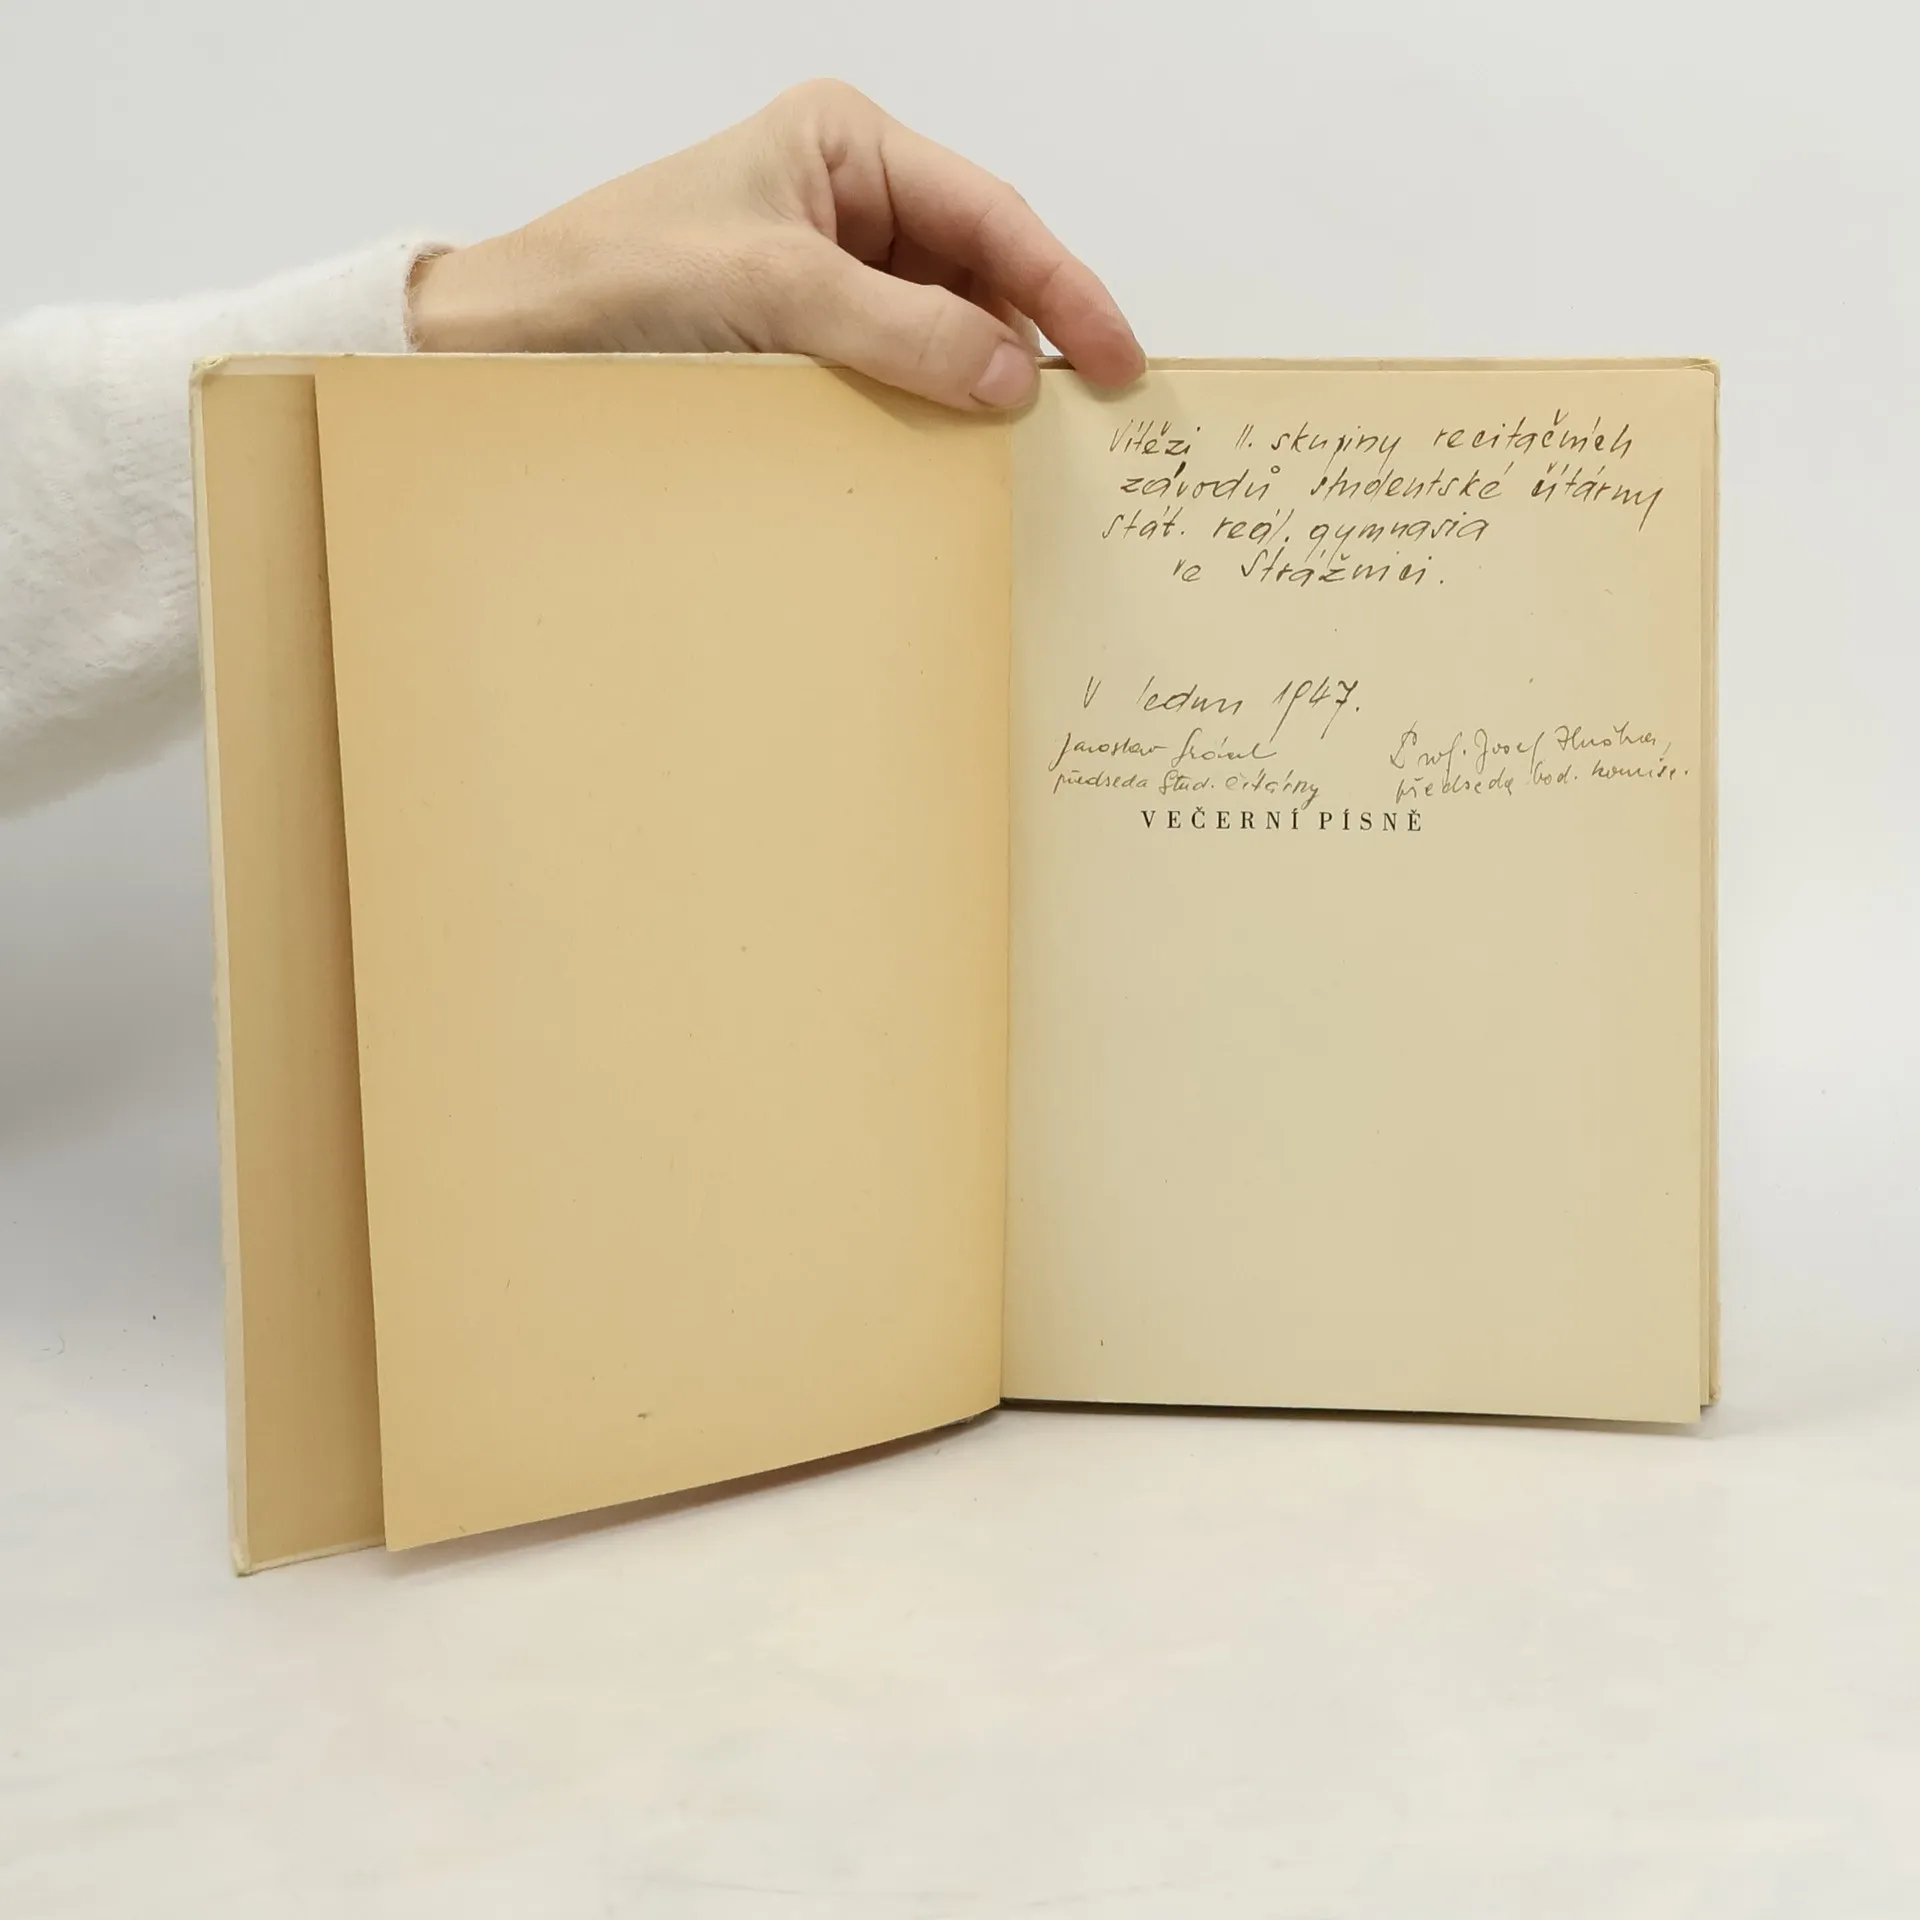 Vítězi II. skupiny recitačních
závodů studentské čítárny
stát. reál. gymnasia
ve Strážnici.
V lednu 1947.
Jaroslav
předseda Stud. čítárny
Prof. Josef
předseda bod. komise.
VEČERNÍ PÍSNĚ